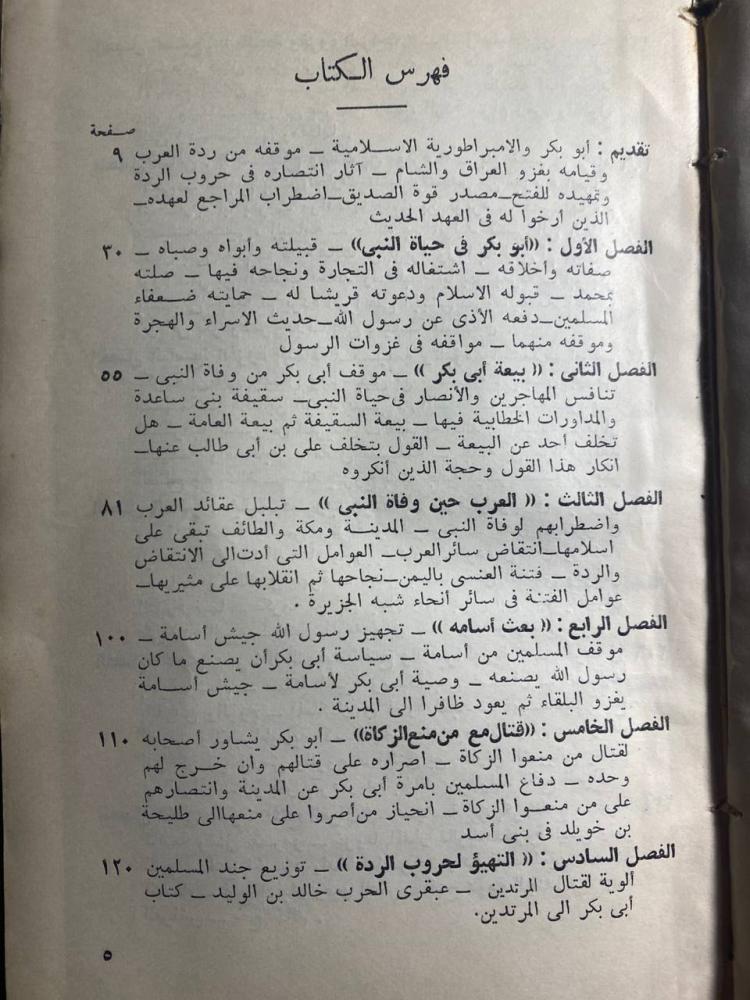 فهرس الـكتاب
صـفحة
تقديم : أبو بكر والامبراطورية الاسـلامية ــ موقفه من ردة العرب ٩
وقيامه بغزو العراق والشام ــ آثار انتصاره فى حروب الردة
وتمهيده للفتح ــ مصدر قوة الصديق ــ اضطراب المراجع لعهده ــ
الذين ارخوا له فى العهد الحديث
الفصل الأول : ((أبو بكر فى حياة النبى)) ــ قبيلته وأبواه وصباه ــ ٣٠
صفاته وأخلاقه ــ اشتغاله فى التجارة ونجاحه فيها ــ صلته
بمحمد ــ قبوله الاسلام ودعوته قريشا له ــ حمايته ضـعفاء
المسلمين ــ دفعه الأذى عن رسول الله ــ حديث الاسراء والهجرة
وموقفه منهما ــ مواقفه فى غزوات الرسول
الفصل الثانى : (( بيعة أبى بكر )) ــ موقف أبى بكر من وفاة النبى ــ ٥٥
تنافس المهاجرين والأنصار فى حياة النبى ــ سقيفة بنى ساعدة
والمداورات الخطابية فيها ــ بيعة السقيفة ثم بيعة العامة ــ هل
تخلف أحد عن البيعة ــ القول بتخلف على بن أبى طالب عنها ــ
انكار هذا القول وحجة الذين أنكروه
الفصل الثالث : (( العرب حين وفاة النبى )) ــ تبلبل عقائد العرب ٨١
واضطرابهم لوفاة النبى ــ المدينـة ومكة والطائف تبقى على
اسلامها ــ انتقاض سائر العرب ــ العوامل التى ادت الى الانتقاض
والردة ــ فتنة العنسى باليمن ــ نجاحها ثم انقلابها على مثيريها ــ
عوامل الفتنة فى سائر أنحاء شبه الجزيرة .
الفصل الرابع : (( بعث أسامه )) ــ تجهيز رسول الله جيش أسامة ــ ١٠٠
موقف المسلمين من أسامة ــ سياسة أبى بكر أن يصنع ما كان
رسول الله يصنعه ــ وصية أبى بكر لأسامة ــ جيش أسـامة
يغزو البلقاء ثم يعود ظافرا الى المدينة .
الفصل الخامس : ((قتال مع من منع الزكاة)) ــ أبو بكر يشاور أصحابه ١١٠
لقتال من منعوا الزكاة ــ اصراره على قتالهم وان خـرج لهم
وحده ــ دفاع المسلمين بامرة أبى بكر عن المدينة وانتصارهم
على من منعـوا الزكاة ــ انحياز من أصروا على منعها الى طليحة
بن خويلد فى بنى أسد
الفصل السادس : (( التهيؤ لحروب الردة )) ــ توزيع جند المسلمين ١٢٠
ألوية لقتال المرتدين ــ عبقرى الحرب خالد بن الوليد ــ كتاب
أبى بكر الى المرتدين.
٥